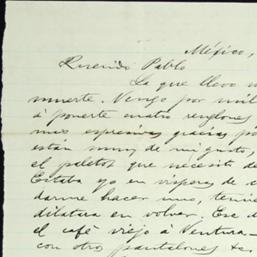 México,
Querido Pablo
La que llevo
muerte. Vengo por mil
á ponerte cuatro renglones
mas espresivas gracias por
están muy de mi gusto,
el paletot que necesito de
Estaba yo en vísperas de
darme hacer uno,
dilatara en volver. Ese
el café viejo á Ventura
con otro pantalones